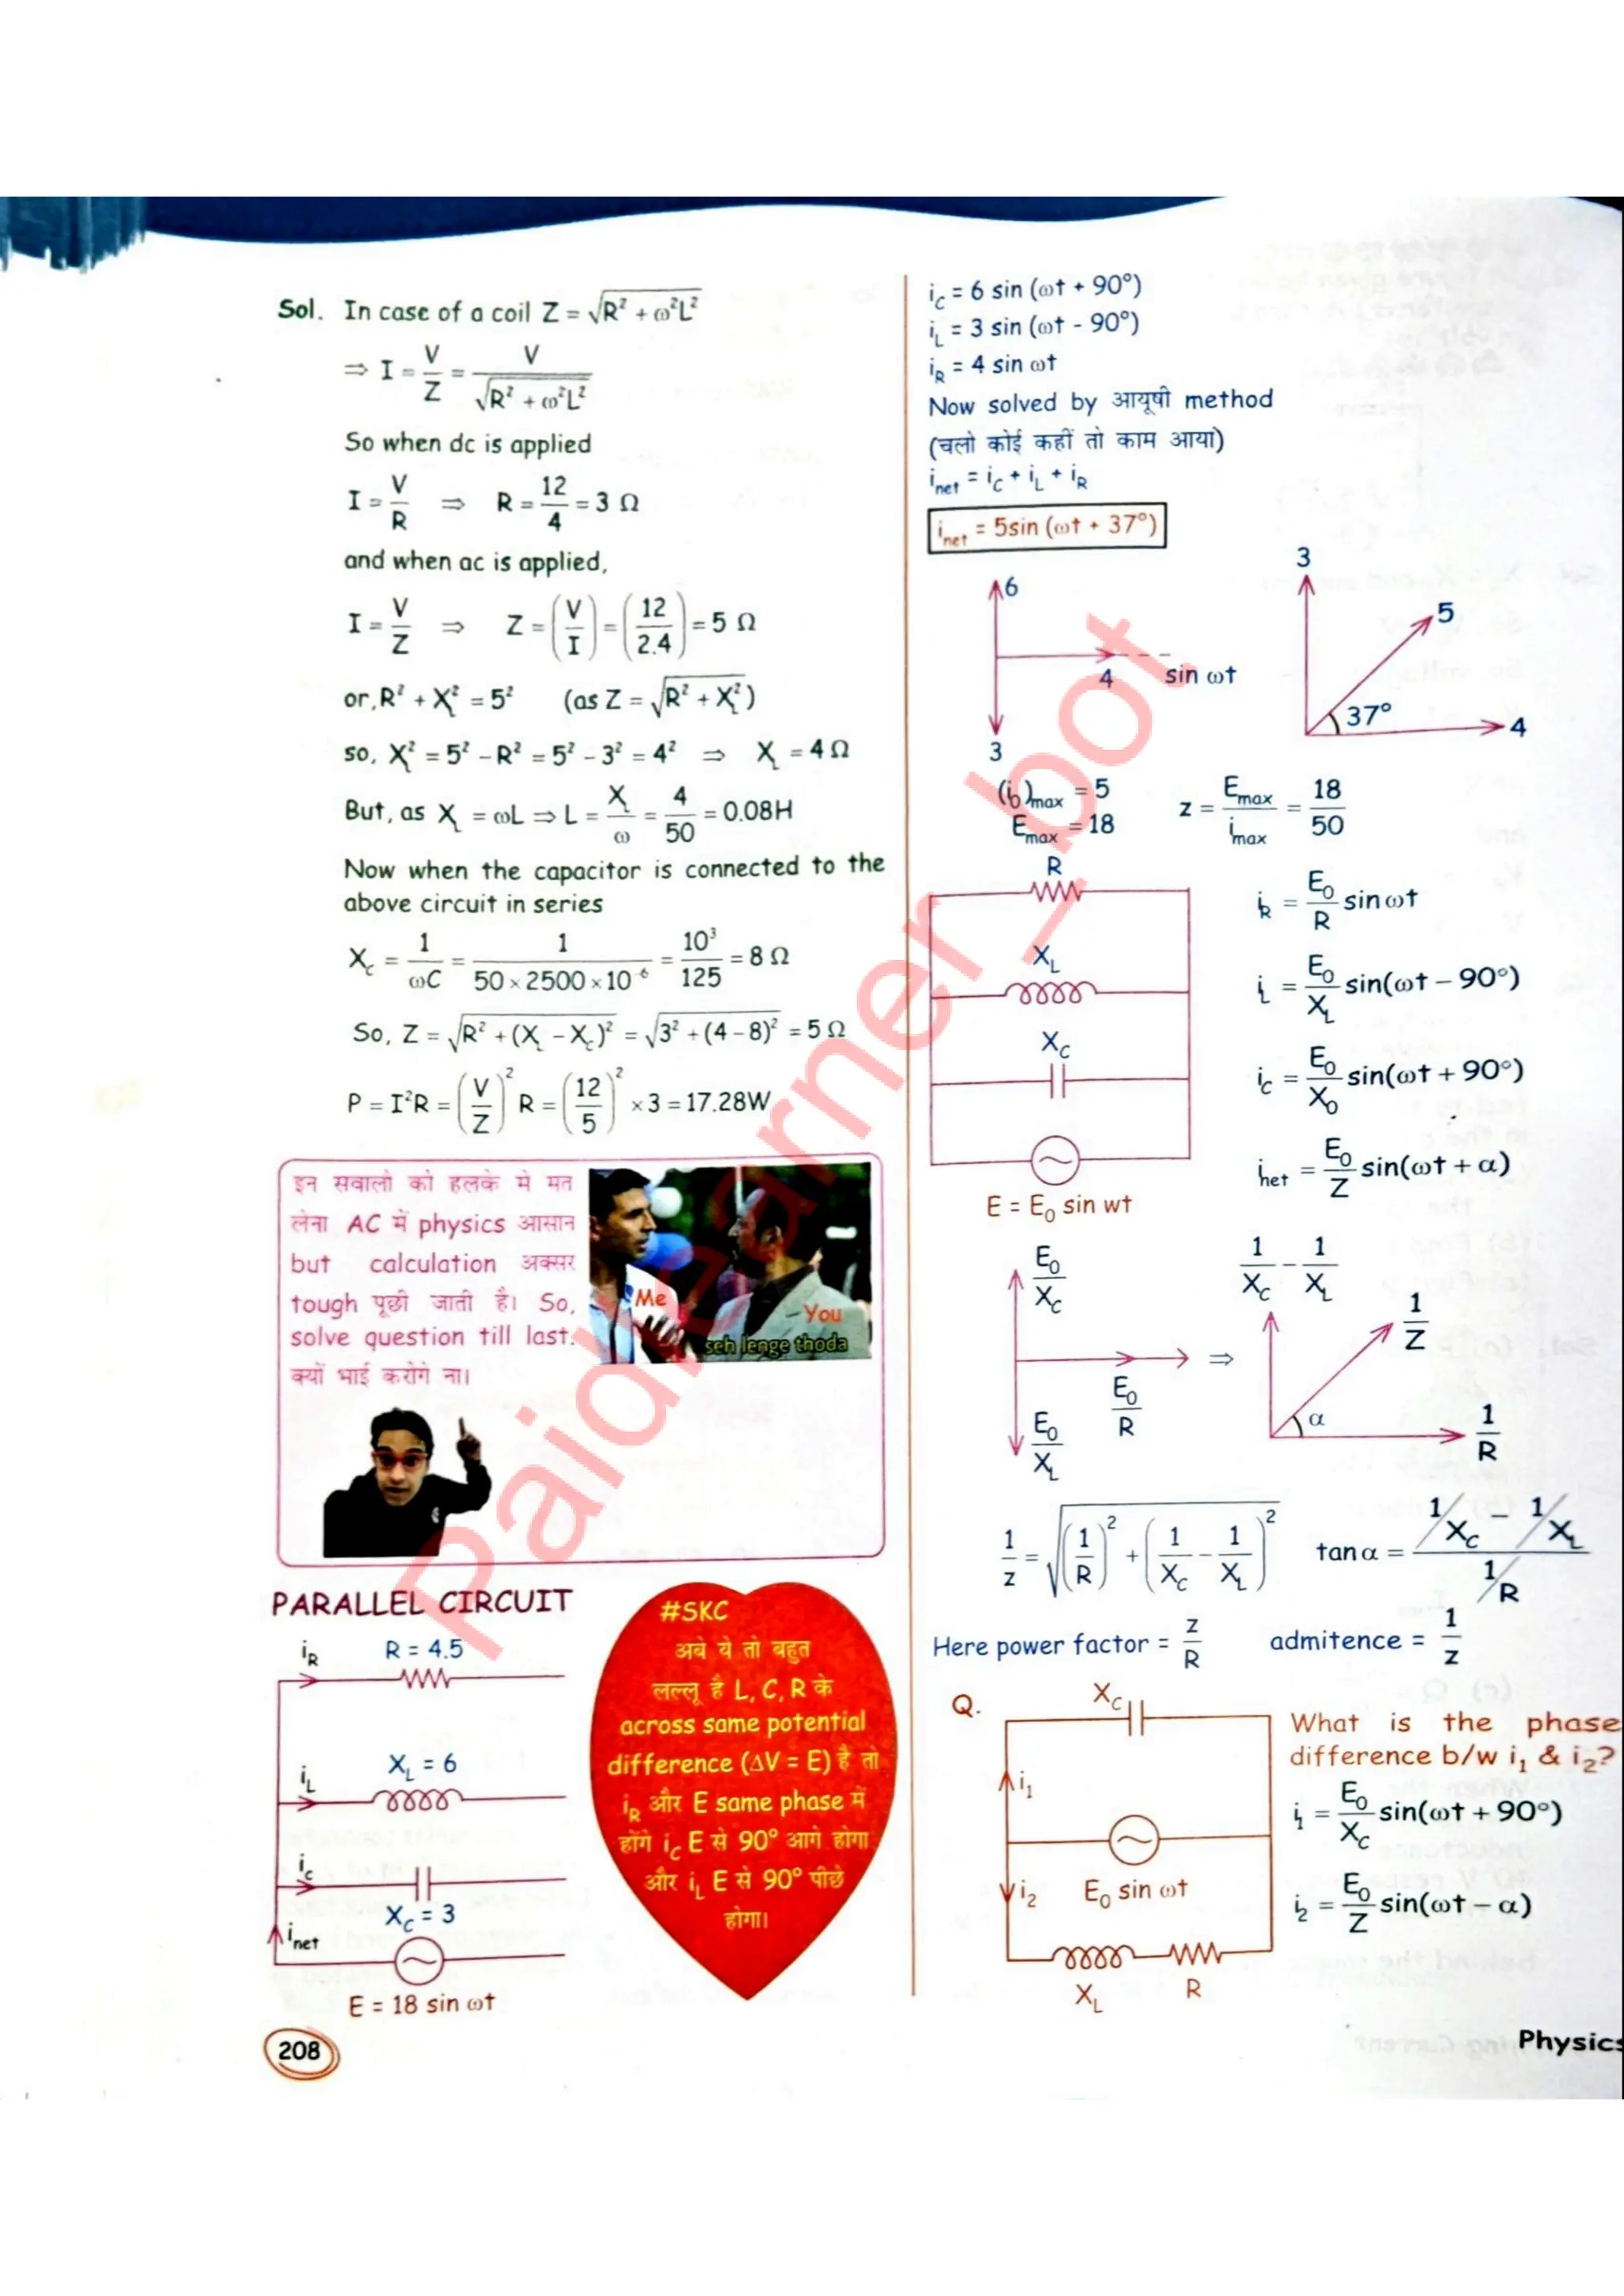 Sol. In case of a coil Z = √(R² + ω²L²)
⇒ I = V/Z = V/√(R² + ω²L²)
So when dc is applied
I = V/R ⇒ R = 12/4 = 3 Ω
and when ac is applied,
I = V/Z ⇒ Z = (V/I) = (12/2.4) = 5 Ω
or, R² + X_L² = 5² (as Z = √(R² + X_L²))
so, X_L² = 5² – R² = 5² – 3² = 4² ⇒ X_L = 4 Ω
But, as X_L = ωL ⇒ L = X_L/ω = 4/50 = 0.08H
Now when the capacitor is connected to the
above circuit in series
X_C = 1/ωC = 1/(50 × 2500 × 10⁻⁶) = 10³/125 = 8 Ω
So, Z = √(R² + (X_L – X_C)²) = √(3² + (4 – 8)²) = 5 Ω
P = I²R = (V/Z)² R = (12/5)² × 3 = 17.28W
इन सवालो को हलके मे मत
लेना AC में physics आसान
but calculation अक्सर
tough पूछी जाती है। So,
solve question till last.
क्यों भाई करोगे ना।
Me
You
seh lenge thoda
PARALLEL CIRCUIT
i_R R = 4.5
i_L X_L = 6
i_c
X_C = 3
i_net
E = 18 sin ωt
#SKC
अबे ये तो बहुत
लल्लू है L, C, R के
across same potential
difference (ΔV = E) है तो
i_R और E same phase में
होंगे i_C E से 90° आगे होगा
और i_L E से 90° पीछे
होगा।
208
i_C = 6 sin (ωt + 90°)
i_L = 3 sin (ωt - 90°)
i_R = 4 sin ωt
Now solved by आयूषी method
(चलो कोई कहीं तो काम आया)
i_net = i_C + i_L + i_R
i_net = 5sin (ωt + 37°)
6
4 sin ωt
3
3
5
37°
4
(i_0)_max = 5
E_max = 18
z = E_max/i_max = 18/50
R
X_L
X_C
E = E₀ sin wt
i_R = E₀/R sin ωt
i_L = E₀/X_L sin(ωt – 90°)
i_C = E₀/X₀ sin(ωt + 90°)
i_net = E₀/Z sin(ωt + α)
E₀/X_C
E₀/R
E₀/X_L
⇒
1/X_C – 1/X_L
1/Z
α
1/R
1/z = √((1/R)² + (1/X_C – 1/X_L)²)
tan α = (1/X_C – 1/X_L)/(1/R)
Here power factor = z/R admitence = 1/z
Q.
X_C
i₁
i₂ E₀ sin ωt
X_L R
What is the phase
difference b/w i₁ & i₂?
i₁ = E₀/X_C sin(ωt + 90°)
i₂ = E₀/Z sin(ωt – α)
Physics
Paidlearner_bot